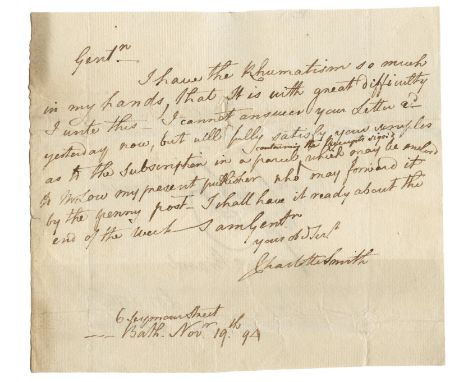 Gentn
I have the Rhumatism so much
in my hands, that It is with great difficulty
I write this – I cannot answer your Letter
yesterday now, but will fully satisfy your scruples
containing the Receipts signd
as to the Subscription in a parcel, which may be enclosd
to Mr Low my present publisher who may forward it
by the penny post – I shall have it ready about the
end of the week I am Gentn
your obd Sert
Charlotte Smith
6 Seymour Street
Bath. Novr 19th 94